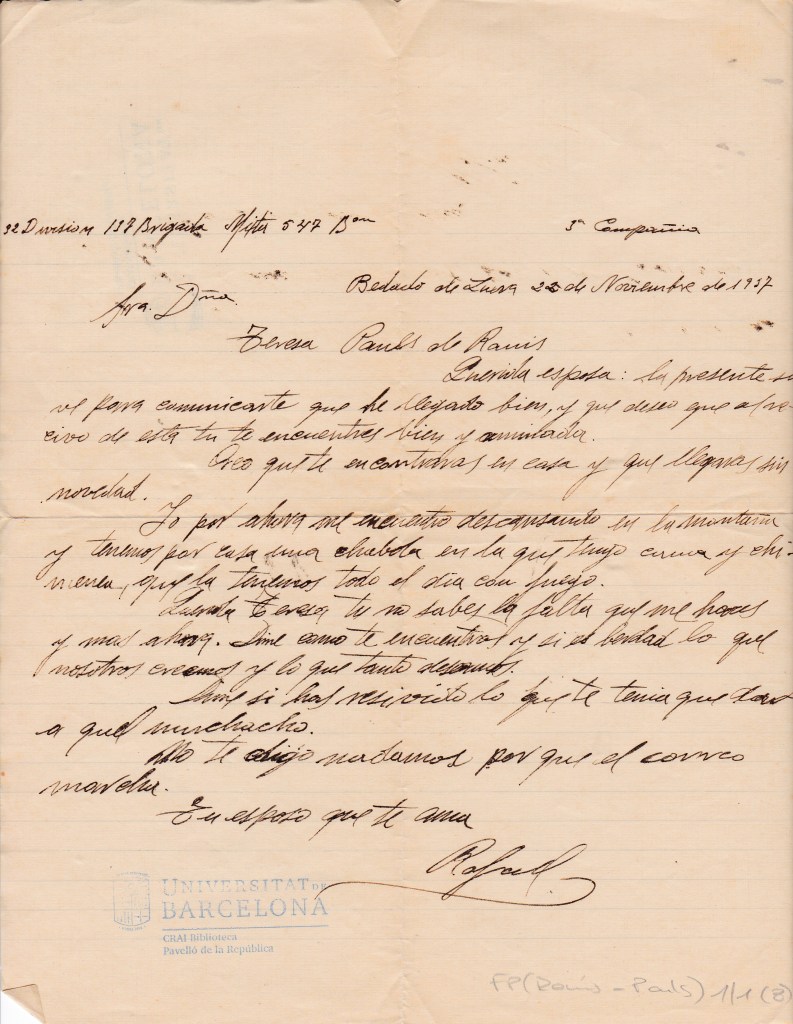 32 Division 137 Brigada Mixta 547 Bon 3ª Compañia
Bedado de Zuera 23 de Noviembre de 1937
Sra. Dña.
Teresa Pauls de Ramis
Querida esposa: la presente sir
ve para comunicarte que he llegado bien, y que deseo que al re
civo de esta tu te encuentres bien y animada.
Creo que te encontraras en casa y que llegaras sin
novedad.
Yo por ahora me encuentro descansando en la montaña
y tenemos por casa una chabola en la que tengo cama y chi
menea, que la tenemos todo el dia con fuego.
Querida Teresa tu no sabes la falta que me haces
y mas ahora. Dime como te encuentras y si es berdad lo que
nosotros creemos y lo que tanto deseamos.
Dime si has resivido lo que te tenia que dar
a quel muchacho.
No te digo nadamas por que el correo
marcha.
Tu esposo que te ama
Rafael
UNIVERSITAT DE
BARCELONA
CRAI Biblioteca
Pavelló de la República
FP (Ramis - Pauls) 1/1 (8)